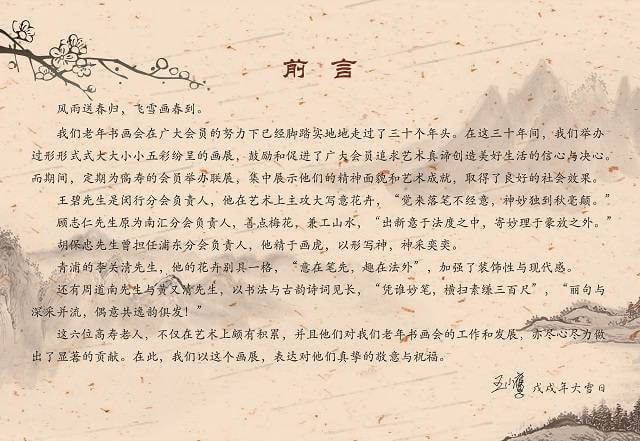 前言
风雨送春归，飞雪画春到。
我们老年书画会在广大会员的努力下已经脚踏实地地走过了三十个年头。在这三十年间，我们举办
过形形式式大大小小五彩纷呈的画展，鼓励和促进了广大会员追求艺术真谛创造美好生活的信心与决心。
而期间，定期为高寿的会员举办联展，集中展示他们的精神面貌和艺术成就，取得了良好的社会效果。
王碧先生是闵行分会负责人，他在艺术上主攻大写意花卉，“觉来落笔不经意，神妙独到秋毫颠。”
顾志仁先生原为南汇分会负责人，善点梅花，兼工山水，“出新意于法度之中，寄妙理于豪放之外。”
胡保忠先生曾担任浦东分会负责人，他精于画虎，以形写神，神采奕奕。
青浦的李关清先生，他的花卉别具一格，“意在笔先，趣在法外”，加强了装饰性与现代感。
还有周道南先生与黄又清先生，以书法与古韵诗词见长，“凭谁妙笔，横扫素缣三百尺”，“丽句与
深采并流，偶意共逸韵俱发！”
这六位高寿老人，不仅在艺术上颇有积累，并且他们对我们老年书画会的工作和发展，亦尽心尽力做
出了显著的贡献。在此，我们以这个画展，表达对他们真挚的敬意与祝福。
戊戌年大雪日